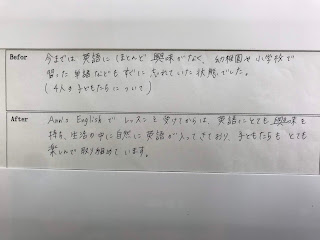 Befor
今までは 英語に ほとんど 興味がなく、幼稚園や小学校で
習った 単語なども すぐに 忘れていた 状態でした。
(4人の子どもたちについて)
After
Ann's English で レッスンを 受けてからは、英語にとても 興味を
持ち、生活の中に自然に 英語が 入ってきており、子どもたちも とても
楽しんで 取り組めています。